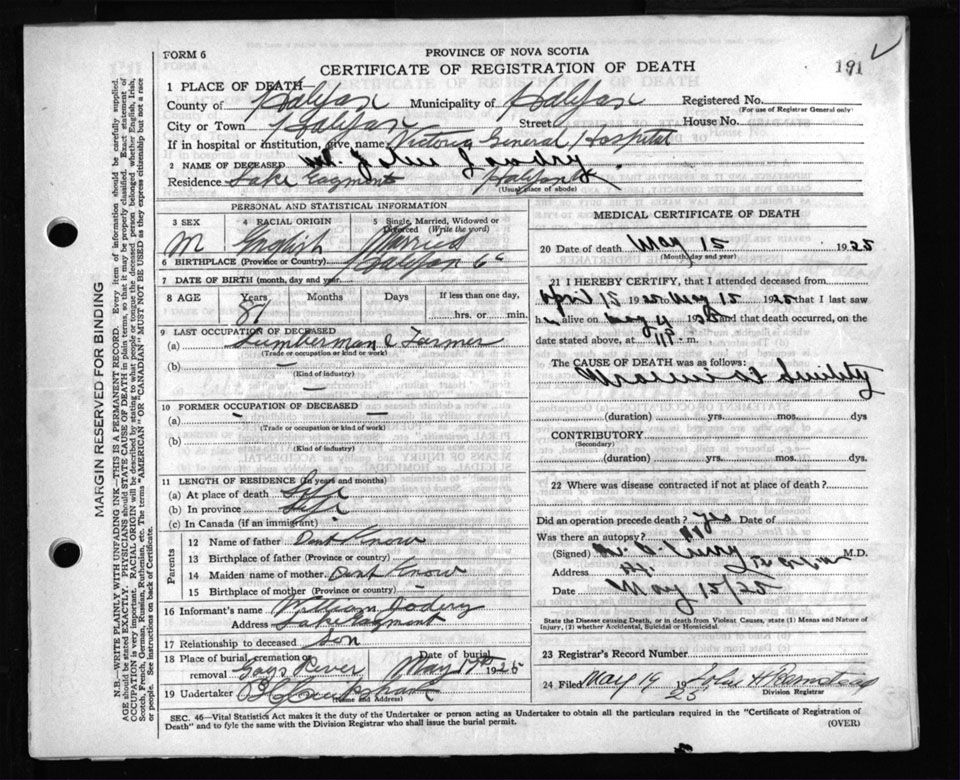 FORM 6
PROVINCE OF NOVA SCOTIA
CERTIFICATE OF REGISTRATION OF DEATH
191
1 PLACE OF DEATH
County of Halifax Municipality of Halifax Registered No.
(For use of Registrar General only)
City or Town Halifax Street House No.
If in hospital or institution, give name Victoria General Hospital
2 NAME OF DECEASED John
Residence Lake Halifax
(Usual place of abode)
PERSONAL AND STATISTICAL INFORMATION
3 SEX
M
4 RACIAL ORIGIN
English
5 Single, Married, Widowed or Divorced (Write the word)
Married
6 BIRTHPLACE (Province or Country) Halifax Co
7 DATE OF BIRTH (month, day and year)
8 AGE Years Months Days If less than one day,
81 hrs. or min.
9 LAST OCCUPATION OF DECEASED
(a) Lumberman & Farmer
(Trade or occupation or kind or work)
(b)
(Kind of industry)
10 FORMER OCCUPATION OF DECEASED
(a)
(Trade or occupation or kind of work)
(b)
(Kind of industry)
11 LENGTH OF RESIDENCE (In years and months)
(a) At place of death Life
(b) In province Life
(c) In Canada (if an immigrant)
Parents
12 Name of father Dont Know
13 Birthplace of father (Province or country)
14 Maiden name of mother Dont Know
15 Birthplace of mother (Province or country)
16 Informant's name William
Address Lake
17 Relationship to deceased Son
18 Place of burial, cremation or removal Gays River
Date of burial May 1925
19 Undertaker
(Name and Address)
MEDICAL CERTIFICATE OF DEATH
20 Date of death May 15 1925
(Month, day and year)
21 I HEREBY CERTIFY, that I attended deceased from
April 15 1925 to May 15 1925 that I last saw
h alive on May and that death occurred, on the
date stated above, at m.
The CAUSE OF DEATH was as follows:
(duration) yrs. mos. dys
CONTRIBUTORY
(Secondary)
(duration) yrs. mos. dys
22 Where was disease contracted if not at place of death?
Did an operation precede death? yes Date of
Was there an autopsy? No
(Signed) M.D.
Address
Date May 15/25
State the Disease causing Death, or in death from Violent Causes, state (1) Means and Nature of Injury, (2) whether Accidental, Suicidal or Homicidal.
23 Registrar's Record Number
24 Filed May 19 1925 John
Division Registrar
SEC. 46—Vital Statistics Act makes it the duty of the Undertaker or person acting as Undertaker to obtain all the particulars required in the "Certificate of Registration of
Death" and to fyle the same with the Division Registrar who shall issue the burial permit.
(OVER)
MARGIN RESERVED FOR BINDING
N.B.—WRITE PLAINLY WITH UNFADING INK—THIS IS A PERMANENT RECORD. Every item of information should be carefully supplied.
AGE should be stated EXACTLY. PHYSICIANS should STATE CAUSE OF DEATH in plain terms, so that it may be properly classified. Exact statement of
OCCUPATION is very important. RACIAL ORIGIN will be described by stating to what people or tongue the deceased person belonged whether English, Irish,
Scotch, French, German, Russian, Ruthenian, etc. The terms "AMERICAN" OR "CANADIAN" MUST NOT BE USED as they express citizenship but not a race
or people. See instructions on back of Certificate.